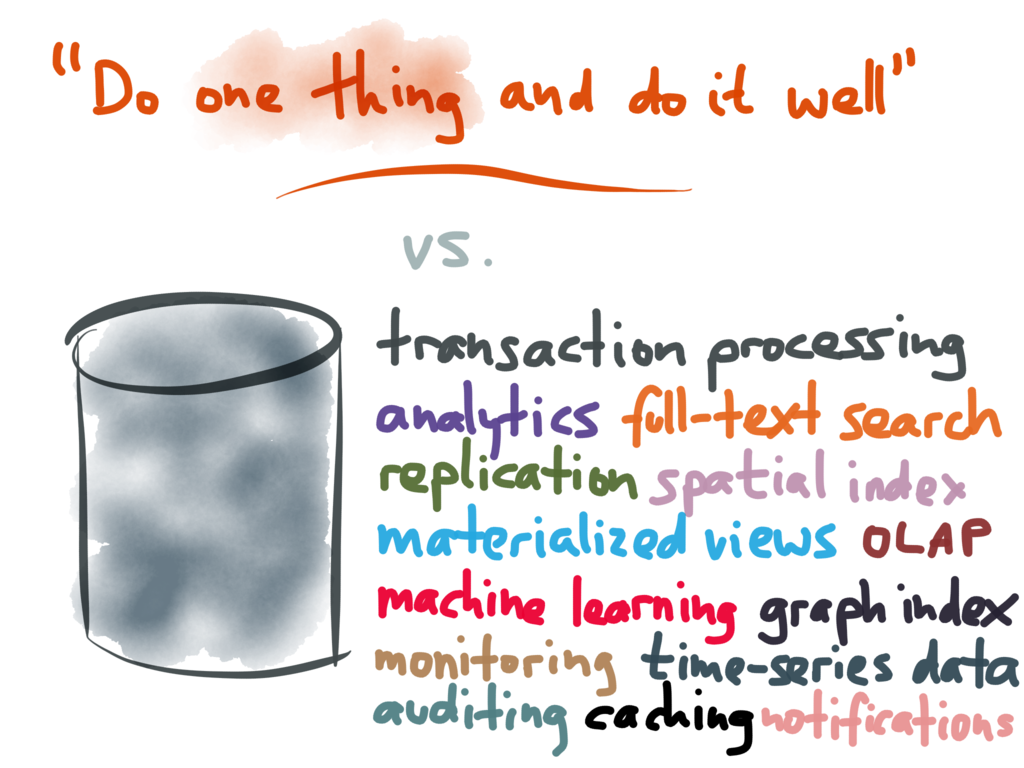 "Do one thing and do it well"
vs.
transaction processing
analytics full-text search
replication spatial index
materialized views OLAP
machine learning graph index
monitoring time-series data
auditing caching notifications